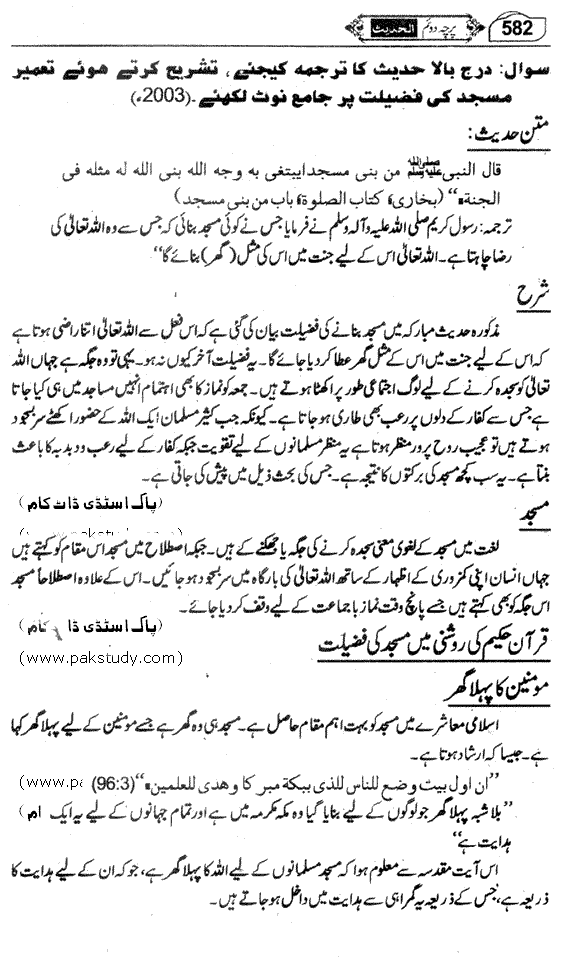 582 الحدیث پرچہ دوئم
سوال: درج بالا حدیث کا ترجمہ کیجئے، تشریح کرتے ہوئے تعمیر
مسجد کی فضیلت پر جامع نوٹ لکھئے۔(2003ء)
متن حدیث:
قال النبیﷺ من بنی مسجدا یبتغی به وجه الله بنی الله له مثله فی
الجنة۔‘‘ (بخاری، کتاب الصلوة، باب من بنی مسجد)
ترجمہ: رسول کریم صلی اللہ علیہ وآلہ وسلم نے فرمایا جس نے کوئی مسجد بنائی کہ جس سے وہ اللہ تعالٰی کی
رضا چاہتا ہے۔ اللہ تعالٰی اس کے لیے جنت میں اس کی مثل (گھر) بنائے گا‘‘
شرح
مذکورہ حدیث مبارکہ میں مسجد بنانے کی فضیلت بیان کی گئی ہے کہ اس فعل سے اللہ تعالٰی اتنا راضی ہوتا ہے
کہ اس کے لیے جنت میں اس کے مثل گھر عطا کر دیا جائے گا۔ یہ فضیلت آخر کیوں نہ ہو۔ یہی تو وہ جگہ ہے جہاں اللہ
تعالٰی کو سجدہ کرنے کے لیے لوگ اجتماعی طور پر اکٹھا ہوتے ہیں۔ جمعہ کو نماز کا بھی اہتمام انہیں مساجد میں ہی کیا جاتا
ہے جس سے کفار کے دلوں پر رعب بھی طاری ہو جاتا ہے۔ کیونکہ جب کثیر مسلمان ایک اللہ کے حضور اکٹھے سر بسجود
ہوتے ہیں تو عجیب روح پرور منظر ہوتا ہے یہ منظر مسلمانوں کے لیے تقویت جبکہ کفار کے لیے رعب و دبدبہ کا باعث
بنتا ہے۔ یہ سب کچھ مسجد کی برکتوں کا نتیجہ ہے۔ جس کی بحث ذیل میں پیش کی جاتی ہے۔
(پاک اسٹڈی ڈاٹ کام)
مسجد
لغت میں مسجد کے لغوی معنی سجدہ کرنے کی جگہ یا جھکنے کے ہیں۔ جبکہ اصطلاح میں مسجد اس مقام کو کہتے ہیں
جہاں انسان اپنی کمزوری کے اظہار کے ساتھ اللہ تعالٰی کی بارگاہ میں سر بسجود ہو جائیں۔ اس کے علاوہ اصطلاحاً مسجد
اس جگہ کو بھی کہتے ہیں جسے پانچ وقت نماز با جماعت کے لیے وقف کر دیا جائے۔
(پاک اسٹڈی ڈا کام)
قرآن حکیم کی روشنی میں مسجد کی فضیلت
(www.pakstudy.com)
مومنین کا پہلا گھر
اسلامی معاشرے میں مسجد کو بہت اہم مقام حاصل ہے۔ مسجد ہی وہ گھر ہے جسے مومنین کے لیے پہلا گھر کہا
ہے۔ جیسا کہ ارشاد ہوتا ہے۔
’’ان اول بیت وضع للناس للذی ببکة مبر کا وهدی للعلمین۔‘‘(96:3) (www.pa
’’بلا شبہ پہلا گھر جو لوگوں کے لیے بنایا گیا وہ مکہ مکرمہ میں ہے اور تمام جہانوں کے لیے یہ ایک ام)
ہدایت ہے‘‘
اس آیت مقدسہ سے معلوم ہوا کہ مسجد مسلمانوں کے لیے اللہ کا پہلا گھر ہے، جو کہ ان کے لیے ہدایت کا
ذریعہ ہے، جس کے ذریعہ یہ گمراہی سے ہدایت میں داخل ہو جاتے ہیں۔